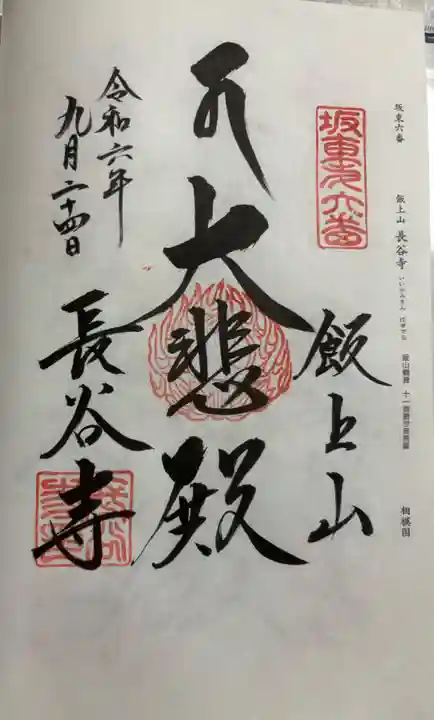 坂東六番
飯上山 長谷寺
いいがみさん はせでら
飯山観音 十一面観世音菩薩
相模国
坂東第六番
飯上山
大悲殿
令和六年
九月二十四日
長谷寺